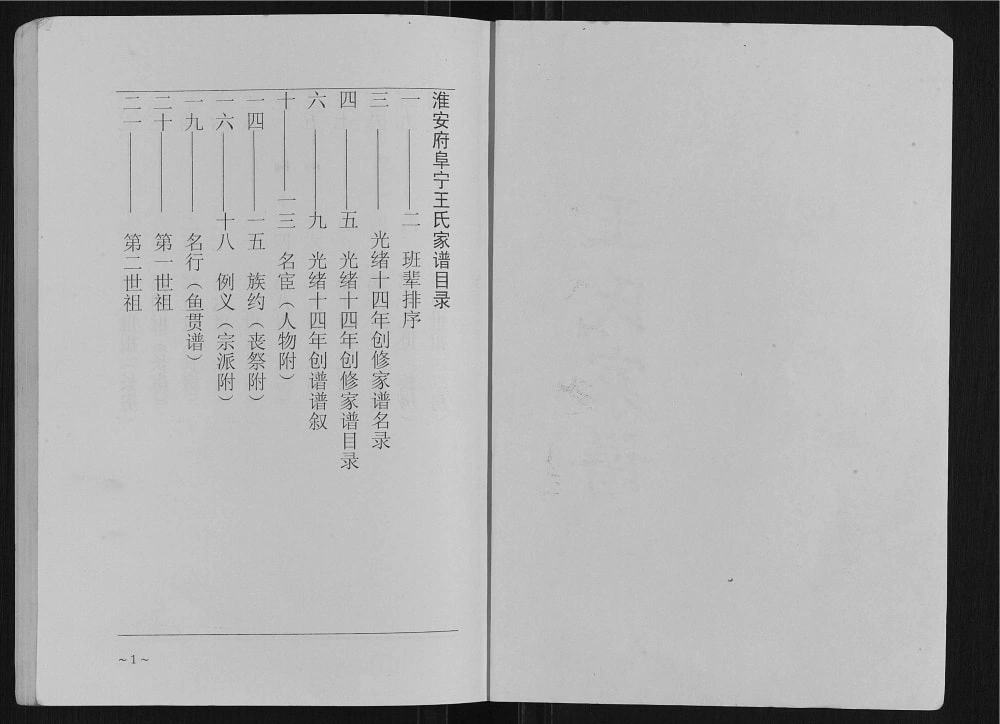 淮安府阜宁王氏家谱目录
一——二 班辈排序
三——光绪十四年创修家谱名录
四——五 光绪十四年创修家谱目录
六——九 光绪十四年创谱谱叙
十——一三 名宦（人物附）
一四——一五 族约（丧祭附）
一六——十八 例义（宗派附）
一九——名行（鱼贯谱）
二十——第一世祖
二一——第二世祖
~1~